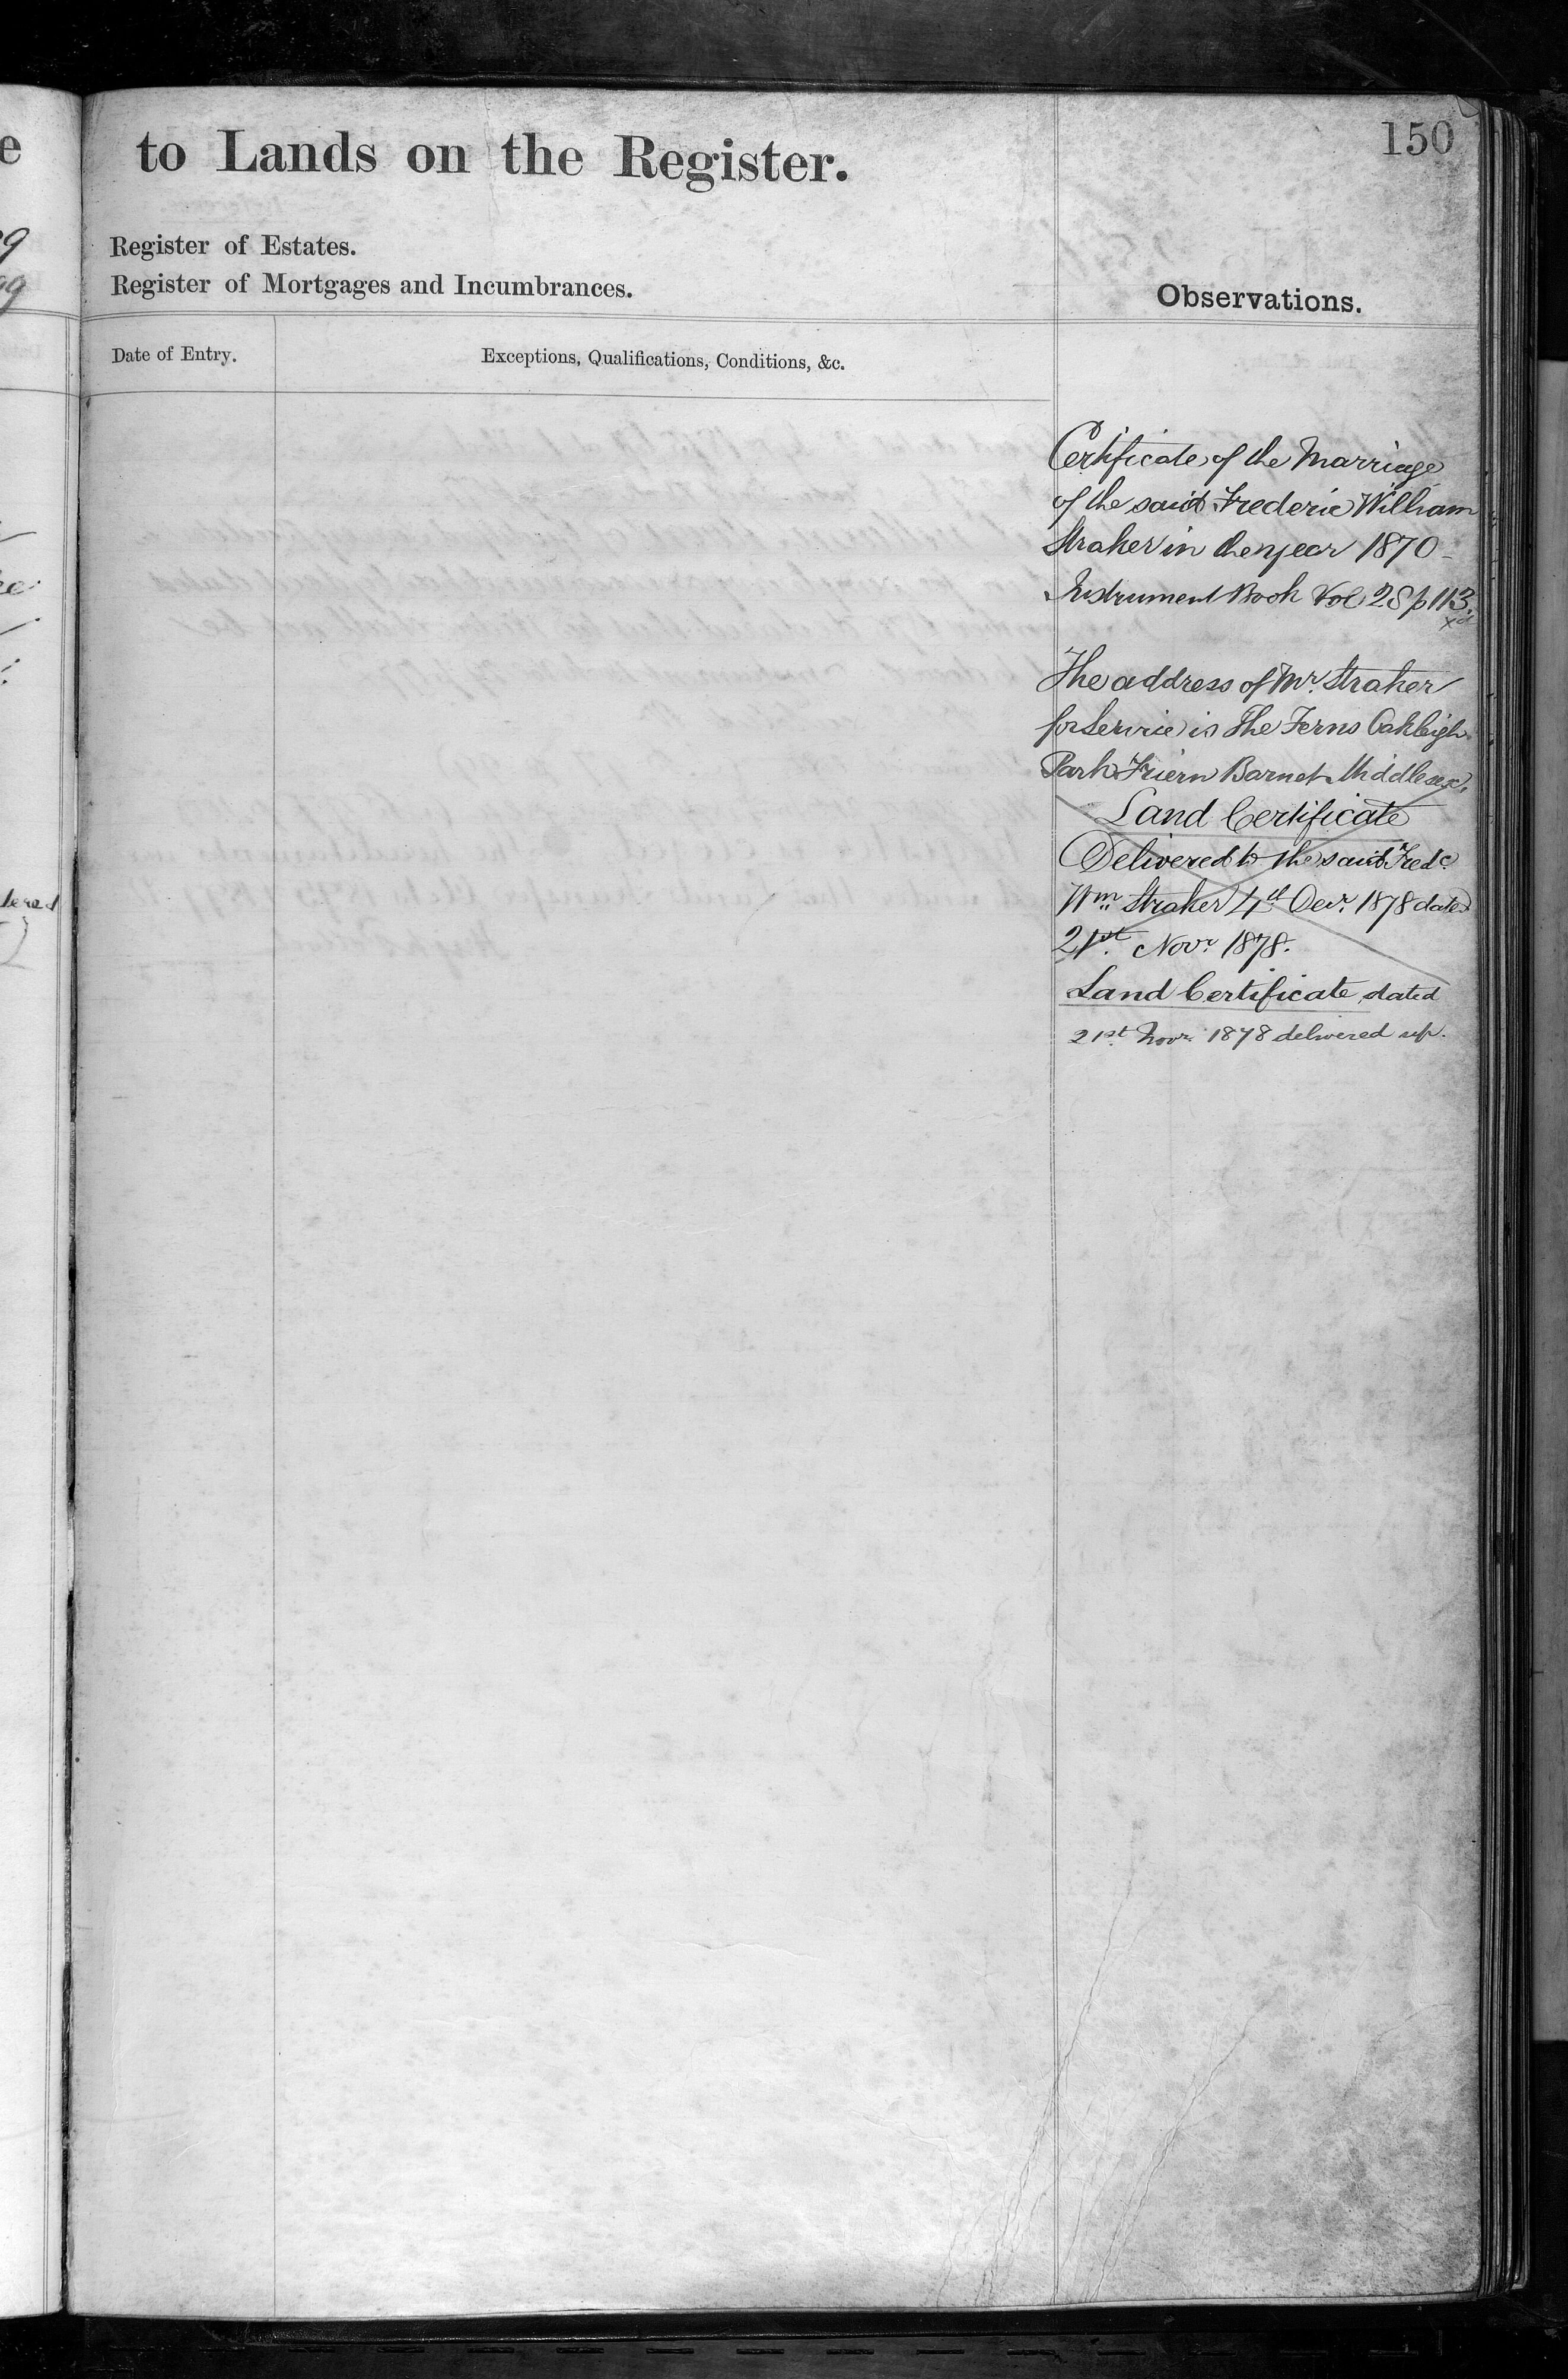 150
to Lands on the Register.
Register of Estates.
Register of Mortgages and Incumbrances.
Observations.
Date of Entry.
Exceptions, Qualifications, Conditions, &c.
Certificate of the Marriage
of the said Frederic William
Straker in the year 1870
Instrument Book Vol 28 p 113.
The address of Mr. Straker
for Service is The Ferns Oakleigh
Park Friern Barnet Middlesex.
Land Certificate
Delivered to the said Fredc.
Wm. Straker 4th Decr. 1878 dated
21st. Novr. 1878.
Land Certificate dated
21st. Novr. 1878 delivered up.